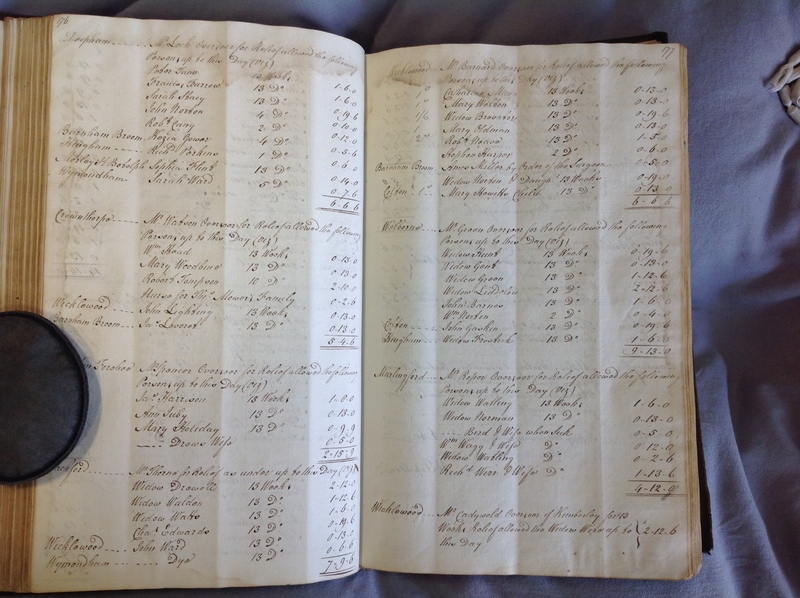 76
Mr. Lock Overseer for Relief allowed the following
Persons up to this Day (Viz)
Peter Tann 13 Weeks 1-6-0
Frances Barrow 13 Do 1-6-0
Sarah Stacy 13 Do 0-19-6
John Norton 4 Do 0-10-0
Robt. Cany 2 Do 0-12-0
Barnham Broom Kezia Gower 4 Do 0-5-6
Hingham Richd. Perkins 1 Do 0-6-0
Morley St. Bodolph Sophia Flint 13 Do 0-14-0
Wymondham Sarah Ward 5 Do 0-7-6
6-6-6
Crownthorpe Mr. Watson Overseer for Relief allowed the following
Persons up to this Day (Viz)
Wm. Head 13 Weeks 0-13-0
Mary Woodbine 13 Do 0-13-0
Robert Tempson 10 Do 2-10-0
Nurse for Thos. Mower's Family 0-2-6
Wicklewood John Lighting 13 Weeks 0-13-0
Barnham Broom Jas. Leverett 13 Do 0-13-0
5-4-6
Mr. Spencer Overseer for Relief allowed the following
Persons up to this Day (Viz)
Jas. Harrison 13 Weeks 1-0-0
Ann Juby 13 Do 0-13-0
Mary Holiday 13 Do 0-9-9
Drows Wife 0-5-0
2-15-9
Mr. Thorne for Relief as under up to this Day (Viz)
Widow Drowell 13 Weeks 2-12-0
Widow Walden 13 Do 1-12-6
Widow Watts 13 Do 1-6-0
Chas. Edwards 13 Do 0-19-6
Wicklewood John Ward 13 Do 0-13-0
Wymondham Dye 13 Do 0-6-6
7-9-6
77
Wicklewood Mr. Barnard Overseer for Relief allowed the following
Persons up to this Day (Viz)
Catharine May 13 Weeks 0-13-0
Mary Worden 13 Do 0-13-0
Widow Browner 13 Do 0-19-6
Mary Edman 13 Do 0-13-0
Robt. 13 Do 1-5-0
Stephen Harper 2 Do 0-6-0
Barnham Broom Amos Miller by Order of the Surgeon 0-5-0
Widow Norton & Daughr. 13 Weeks 0-19-0
Coston Mary Howetts Child 13 Do 0-13-0
6-6-6
Welborne Mr. Green Overseer for Relief allowed the following
Persons up to this Day (Viz)
Widow Hunt 13 Weeks 0-19-6
Widow Gent 13 Do 0-13-0
Widow Green 13 Do 1-12-6
Widow 13 Do 2-12-6
John Barnes 13 Do 1-6-0
Wm. Norton 2 Do 0-4-0
Coston John Gaskin 13 Do 0-19-6
Hingham Widow Frostick 13 Do 1-6-0
9-13-0
Marlingford Mr. Roper Overseer for Relief allowed the following
Persons up to this Day (Viz)
Widow Watling 13 Weeks 1-6-0
Widow Norman 13 Do 0-13-0
Bird & Wife when Sick 0-5-0
Wm. Wegg & Wife Do 0 12-0
Widow Watling Do 0-2-6
Richd. Weir & Wife Do 1-13-6
4-12-0
Wicklewood Mr. Cadywold Overseer of Kimberley for 13
Weeks Relief allowed the Widow Wegg up to 2-12-6
this Day